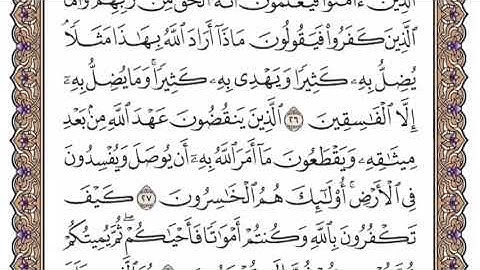 الَّذِينَ ءَامَنُوا فَيَعْلَمُونَ أَنَّهُ الْحَقُّ مِن رَّبِّهِمْ وَأَمَّا
الَّذِينَ كَفَرُوا فَيَقُولُونَ مَاذَا أَرَادَ اللَّهُ بِهَٰذَا مَثَلًا ۘ
يُضِلُّ بِهِۦ كَثِيرًا وَيَهْدِى بِهِۦ كَثِيرًا ۚ وَمَا يُضِلُّ بِهِۦٓ
إِلَّا الْفَٰسِقِينَ ٢٦ الَّذِينَ يَنقُضُونَ عَهْدَ اللَّهِ مِنۢ بَعْدِ
مِيثَٰقِهِۦ وَيَقْطَعُونَ مَآ أَمَرَ اللَّهُ بِهِۦٓ أَن يُوصَلَ وَيُفْسِدُونَ
فِى الْأَرْضِ ۚ أُولَٰٓئِكَ هُمُ الْخَٰسِرُونَ ٢٧ كَيْفَ
تَكْفُرُونَ بِاللَّهِ وَكُنتُمْ أَمْوَٰتًا فَأَحْيَٰكُمْ ۖ ثُمَّ يُمِيتُكُمْ